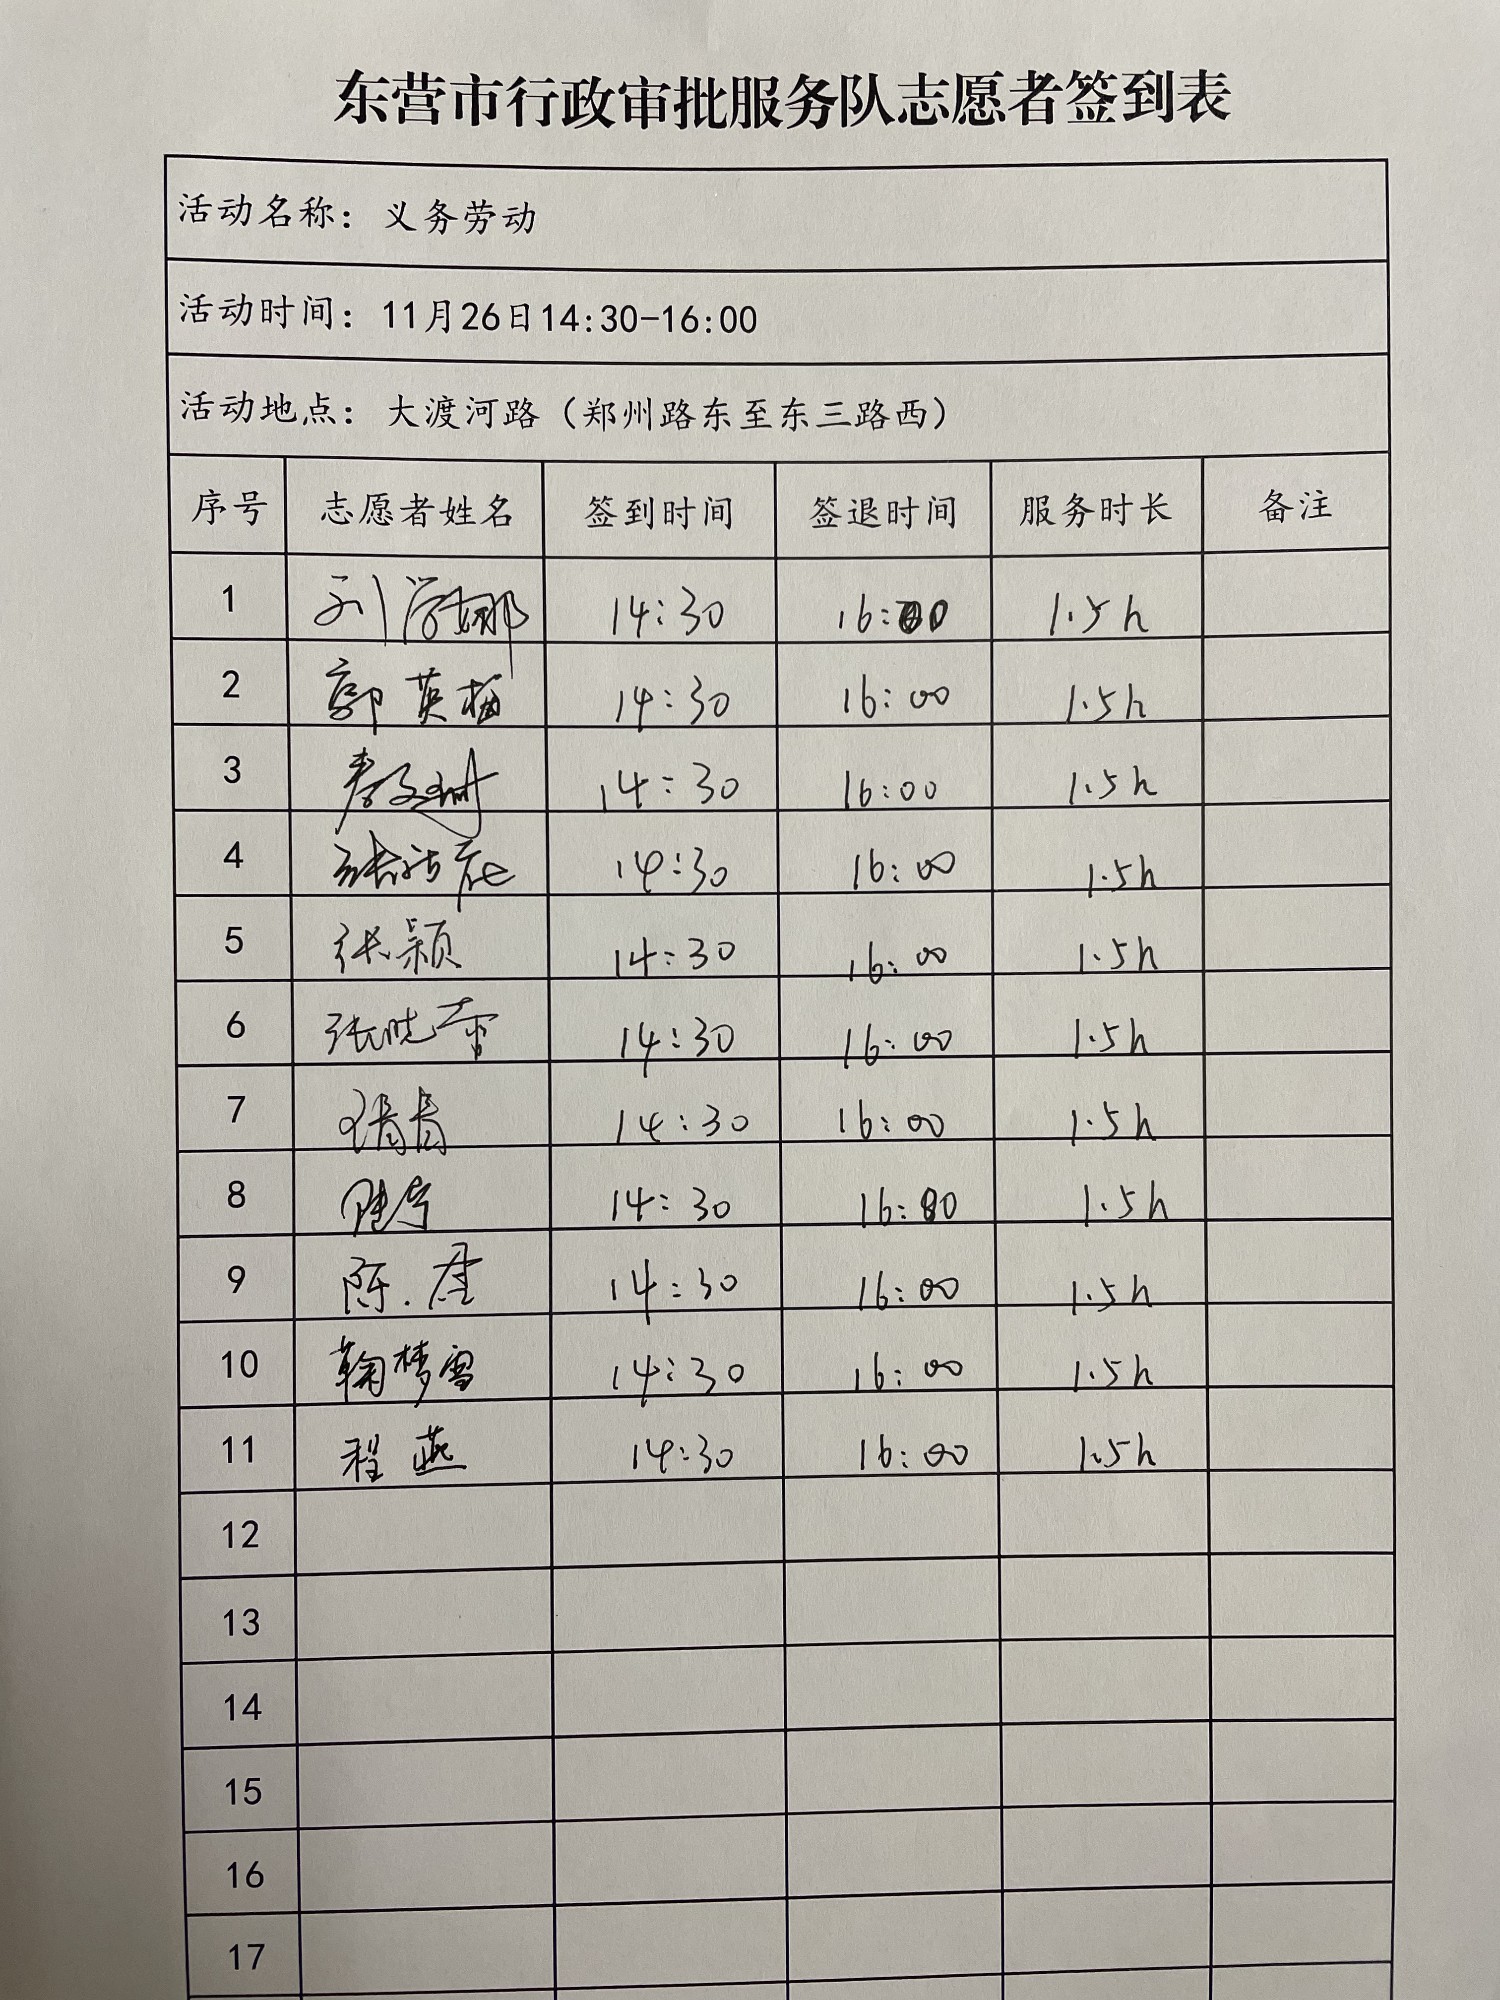 东营市行政审批服务队志愿者签到表
活动名称：义务劳动
活动时间：11月26日14:30-16:00
活动地点：大渡河路（郑州路东至东三路西）
序号 志愿者姓名 签到时间 签退时间 服务时长 备注
1 刘学娜 14:30 16:00 1.5h
2 郭英梅 14:30 16:00 1.5h
3 14:30 16:00 1.5h
4 14:30 16:00 1.5h
5 张颖 14:30 16:00 1.5h
6 张晓蕾 14:30 16:00 1.5h
7 14:30 16:00 1.5h
8 14:30 16:00 1.5h
9 陈 14:30 16:00 1.5h
10 鞠梦雪 14:30 16:00 1.5h
11 程燕 14:30 16:00 1.5h
12
13
14
15
16
17